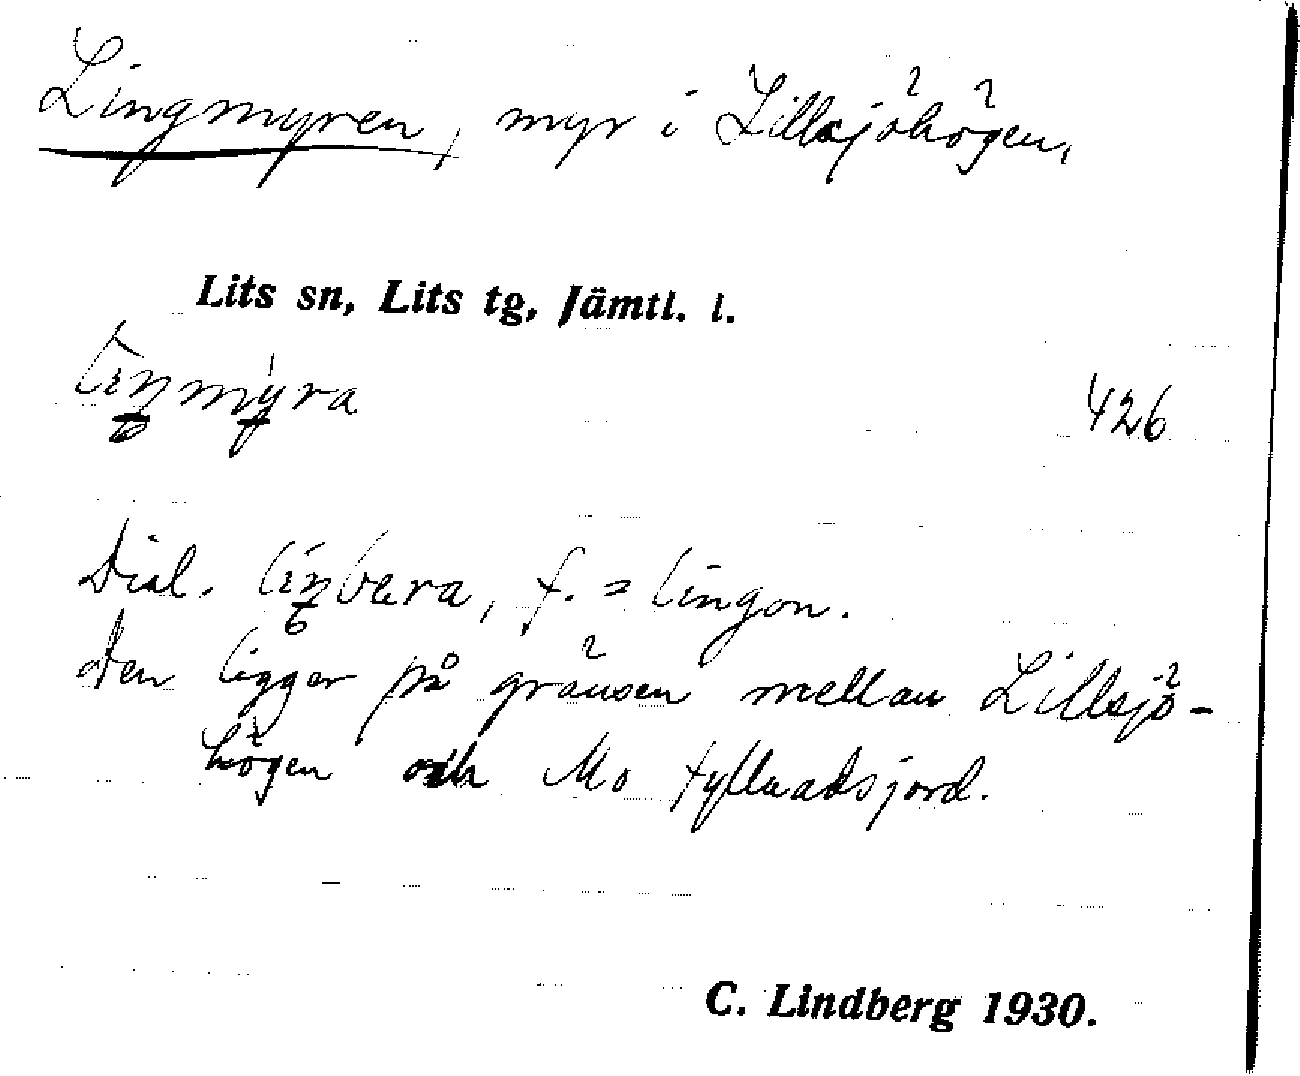 Lingmyren, myr i Lillsjöhögen,
Lits sn, Lits tg, Jämtl. l.
liŋmýra
426
Dial. liŋbæra, f. = lingon.
Den ligger på gränsen mellan Lillsjö-
högen och Mo
C. Lindberg 1930.